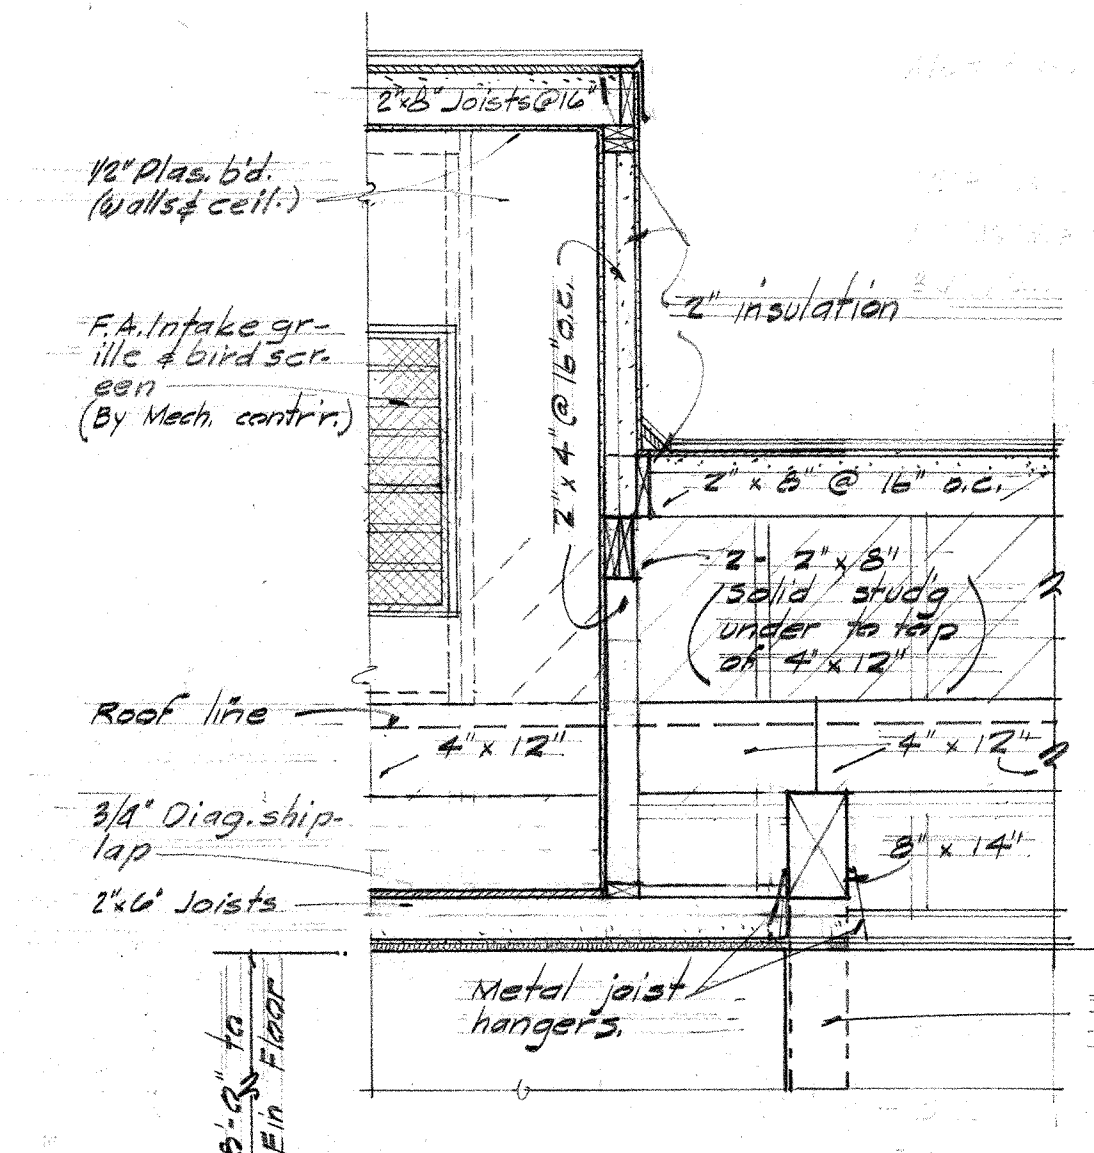 2"x8" Joists@16"
1/2" Plas. b'd.
(walls & ceil.)
F.A. Intake gr-
ille & bird scr-
een
(By Mech. contr'r.)
2" x 4" @ 16" o.c.
2" insulation
2" x 8" @ 16" o.c.
2 - 2" x 8"
(Solid stud'g
under to top
of 4" x 12")
Roof line
4" x 12"
4" x 12"
3/4" Diag. ship-
lap
8" x 14"
2"x6" Joists
Metal joist
hangers.
8'-0" to
Fin Floor